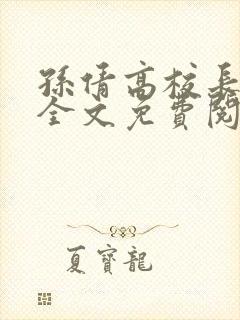 孫倩高校長
全文免費閱
夏寶龍